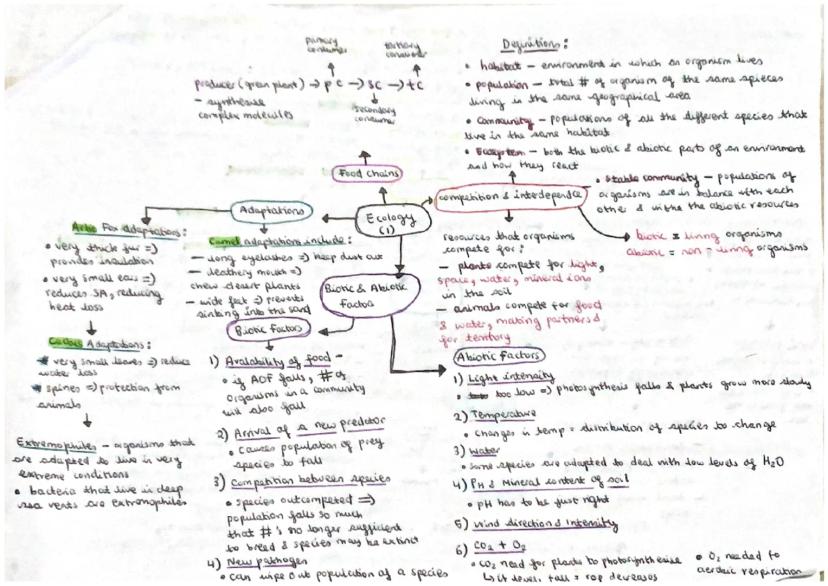 primary consumer
tertiary consumer
producer (green plant) → pc → sc → tc
- synthesise
complex molecules
secondary consumer
Food chains
Ecology
(1)
Definitions:
• habitat - environment in which an organism lives
• population - total # of organism of the same spieces
living in the same geographical area
• Community - populations of all the different species that
live in the same habitat
• Ecosystem - both the biotic & abiotic parts of an environment
and how they react
competition & interdepence
• Stable community - populations of
organisms are in balance with each
other & withe the abiotic resources
biotic = living organisms
abiotic = non-living organisms
resources that organisms
compete for:
- plants compete for light,
space, water, mineral ions
in the soil
- animals compete for food
& water, mating partners &
for territory
Adaptations
Artic Fox adaptations:
• very thick fur =>
provides insulation
• very small ears =>
reduces SA, reducing
heat loss
Cactus Adaptations:
very small leaves => reduce
water loss
spines => protection from
animals
Extremophiles - organisms that
are adapted to live in very
extreme conditions
• bacteria that live in deep
sea vents are extremophiles
Camel adaptations include:
- long eyelashes => keep dust out
- leathery mouth =>
chew desert plants
- wide feet => prevents
sinking into the sand
Biotic & Abiotic
Factors
Biotic Factors
1) Availability of food -
• if AOF falls, # of
organisms in a community
will also fall
2) Arrival of a new predator
• causes population of prey
species to fall
3) Competition between species
• species outcompeted =>
population falls so much
that #'s no longer sufficient
to breed & species may be extinct
4) New pathogen
• can wipe out population of a species
Abiotic Factors
1) Light intensity
• too low => photosynthesis falls & plants grow more slowly
2) Temperature
• changes in temp = distribution of species to change
3) Water
• some species are adapted to deal with low levels of H2O
4) PH & Mineral content of soil
• pH has to be just right
5) Wind direction & Intensity
6) CO2 + O2
• CO2 need for plants to photosynthesise
• O2 needed to
aerobic respiration